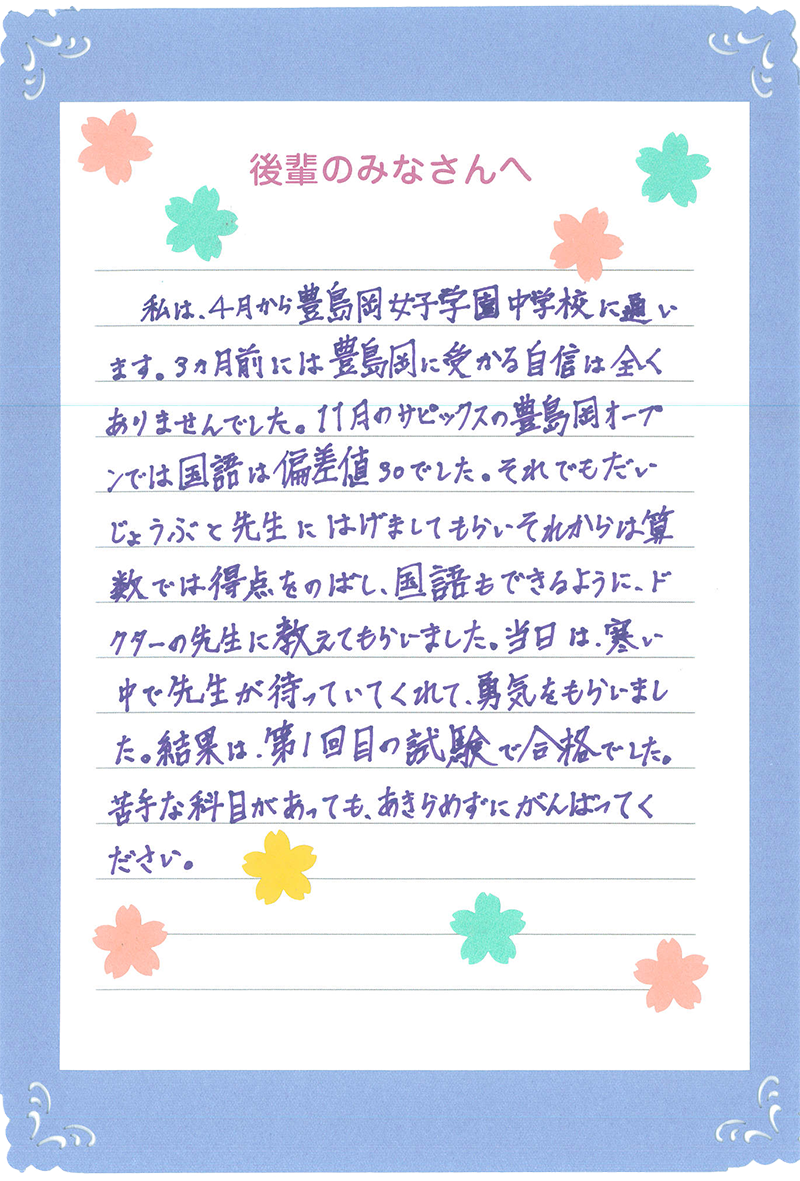 後輩のみなさんへ
私は、4月から豊島岡女子学園中学校に通い
ます。3ヵ月前には豊島岡に受かる自信は全く
ありませんでした。11月のサピックスの豊島岡オープ
ンでは国語は偏差値30でした。それでもだい
じょうぶと先生にはげましてもらいそれからは算
数では得点をのばし、国語もできるように、ド
クターの先生に教えてもらいました。当日は、寒い
中で先生が待っていてくれて、勇気をもらいまし
た。結果は、第1回目の試験で合格でした。
苦手な科目があっても、あきらめずにがんばってく
ださい。